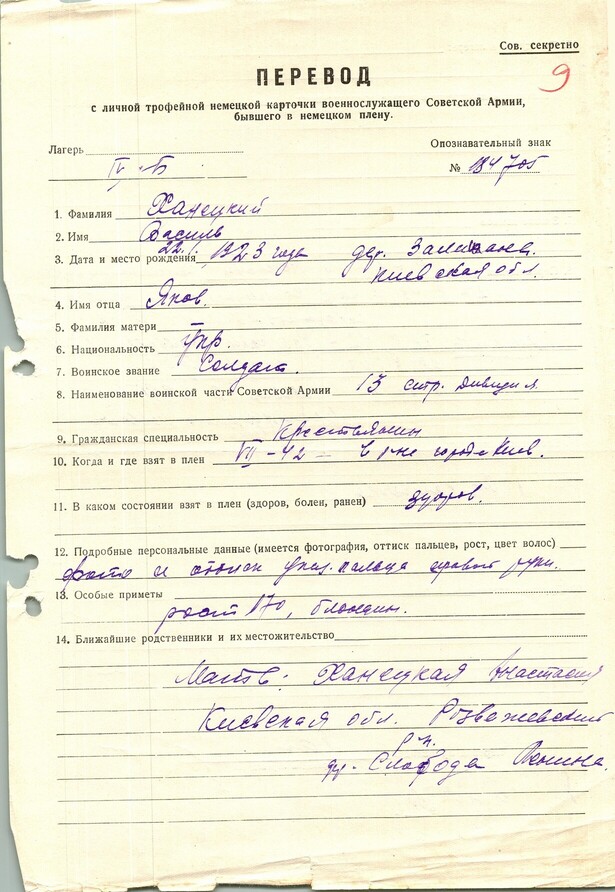 Сов. секретно
9
ПЕРЕВОД
с личной трофейной немецкой карточки военнослужащего Советской Армии,
бывшего в немецком плену.
Лагерь IV-Б
Опознавательный знак
№ 184705
1. Фамилия Ханецкий
2. Имя Василь
3. Дата и место рождения 22. 1923 года дер.
Киевская обл.
4. Имя отца Яков.
5. Фамилия матери
6. Национальность Укр.
7. Воинское звание Солдат.
8. Наименование воинской части Советской Армии 13 стр. дивизия
9. Гражданская специальность Крестьянин
10. Когда и где взят в плен VII-42 - в р-не города Киев.
11. В каком состоянии взят в плен (здоров, болен, ранен) здоров.
12. Подробные персональные данные (имеется фотография, оттиск пальцев, рост, цвет волос)
фото и оттиск указ. пальца правой руки.
13. Особые приметы
рост 170, блондин.
14. Ближайшие родственники и их местожительство
Мать: Ханецкая Анастасия
Киевская обл. Розважевский
р-н.
дер. Слобода Ленина.